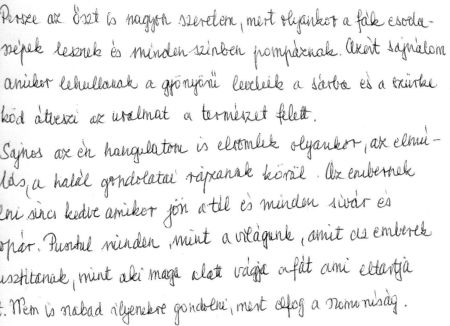 Persze az őszt is nagyon szeretem, mert olyankor a fák csoda-
szépek lesznek és minden színben pompáznak. Azért sajnálom
amikor lehullanak a gyönyörű levelek a sárba és a szürke
köd átveszi az uralmat a természet felett.
Sajnos az én hangulatom is elromlik olyankor, az elmú-
lás, a halál gondolatai rajzanak körül. Az embernek
lni sincs kedve amikor jön a tél és minden sivár és
opár. Pusztul minden, mint a világunk, amit az emberek
usztítanak, mint aki maga alatt vágja a fát ami eltartja
t. Nem is szabad ilyenekre gondolni, mert elfog a szomorúság.